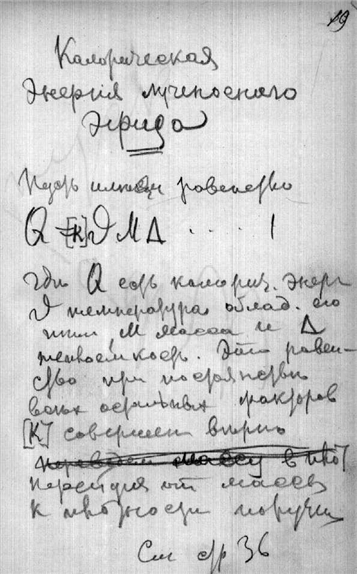 19
Калорическая
Энергия лучепосного
Эфира
Пусть имеем равенство
Q = [K] ϑ M Δ .... 1
где Q есть калорич. энерг
ϑ температура облад. его
M масса и Δ
теплоемкость. Это равен-
ство при постоянстве
всех остальных факторов
[K] совершен верно
переведем массу в плот
Перейдя от массы
к плотности получим
См стр 36